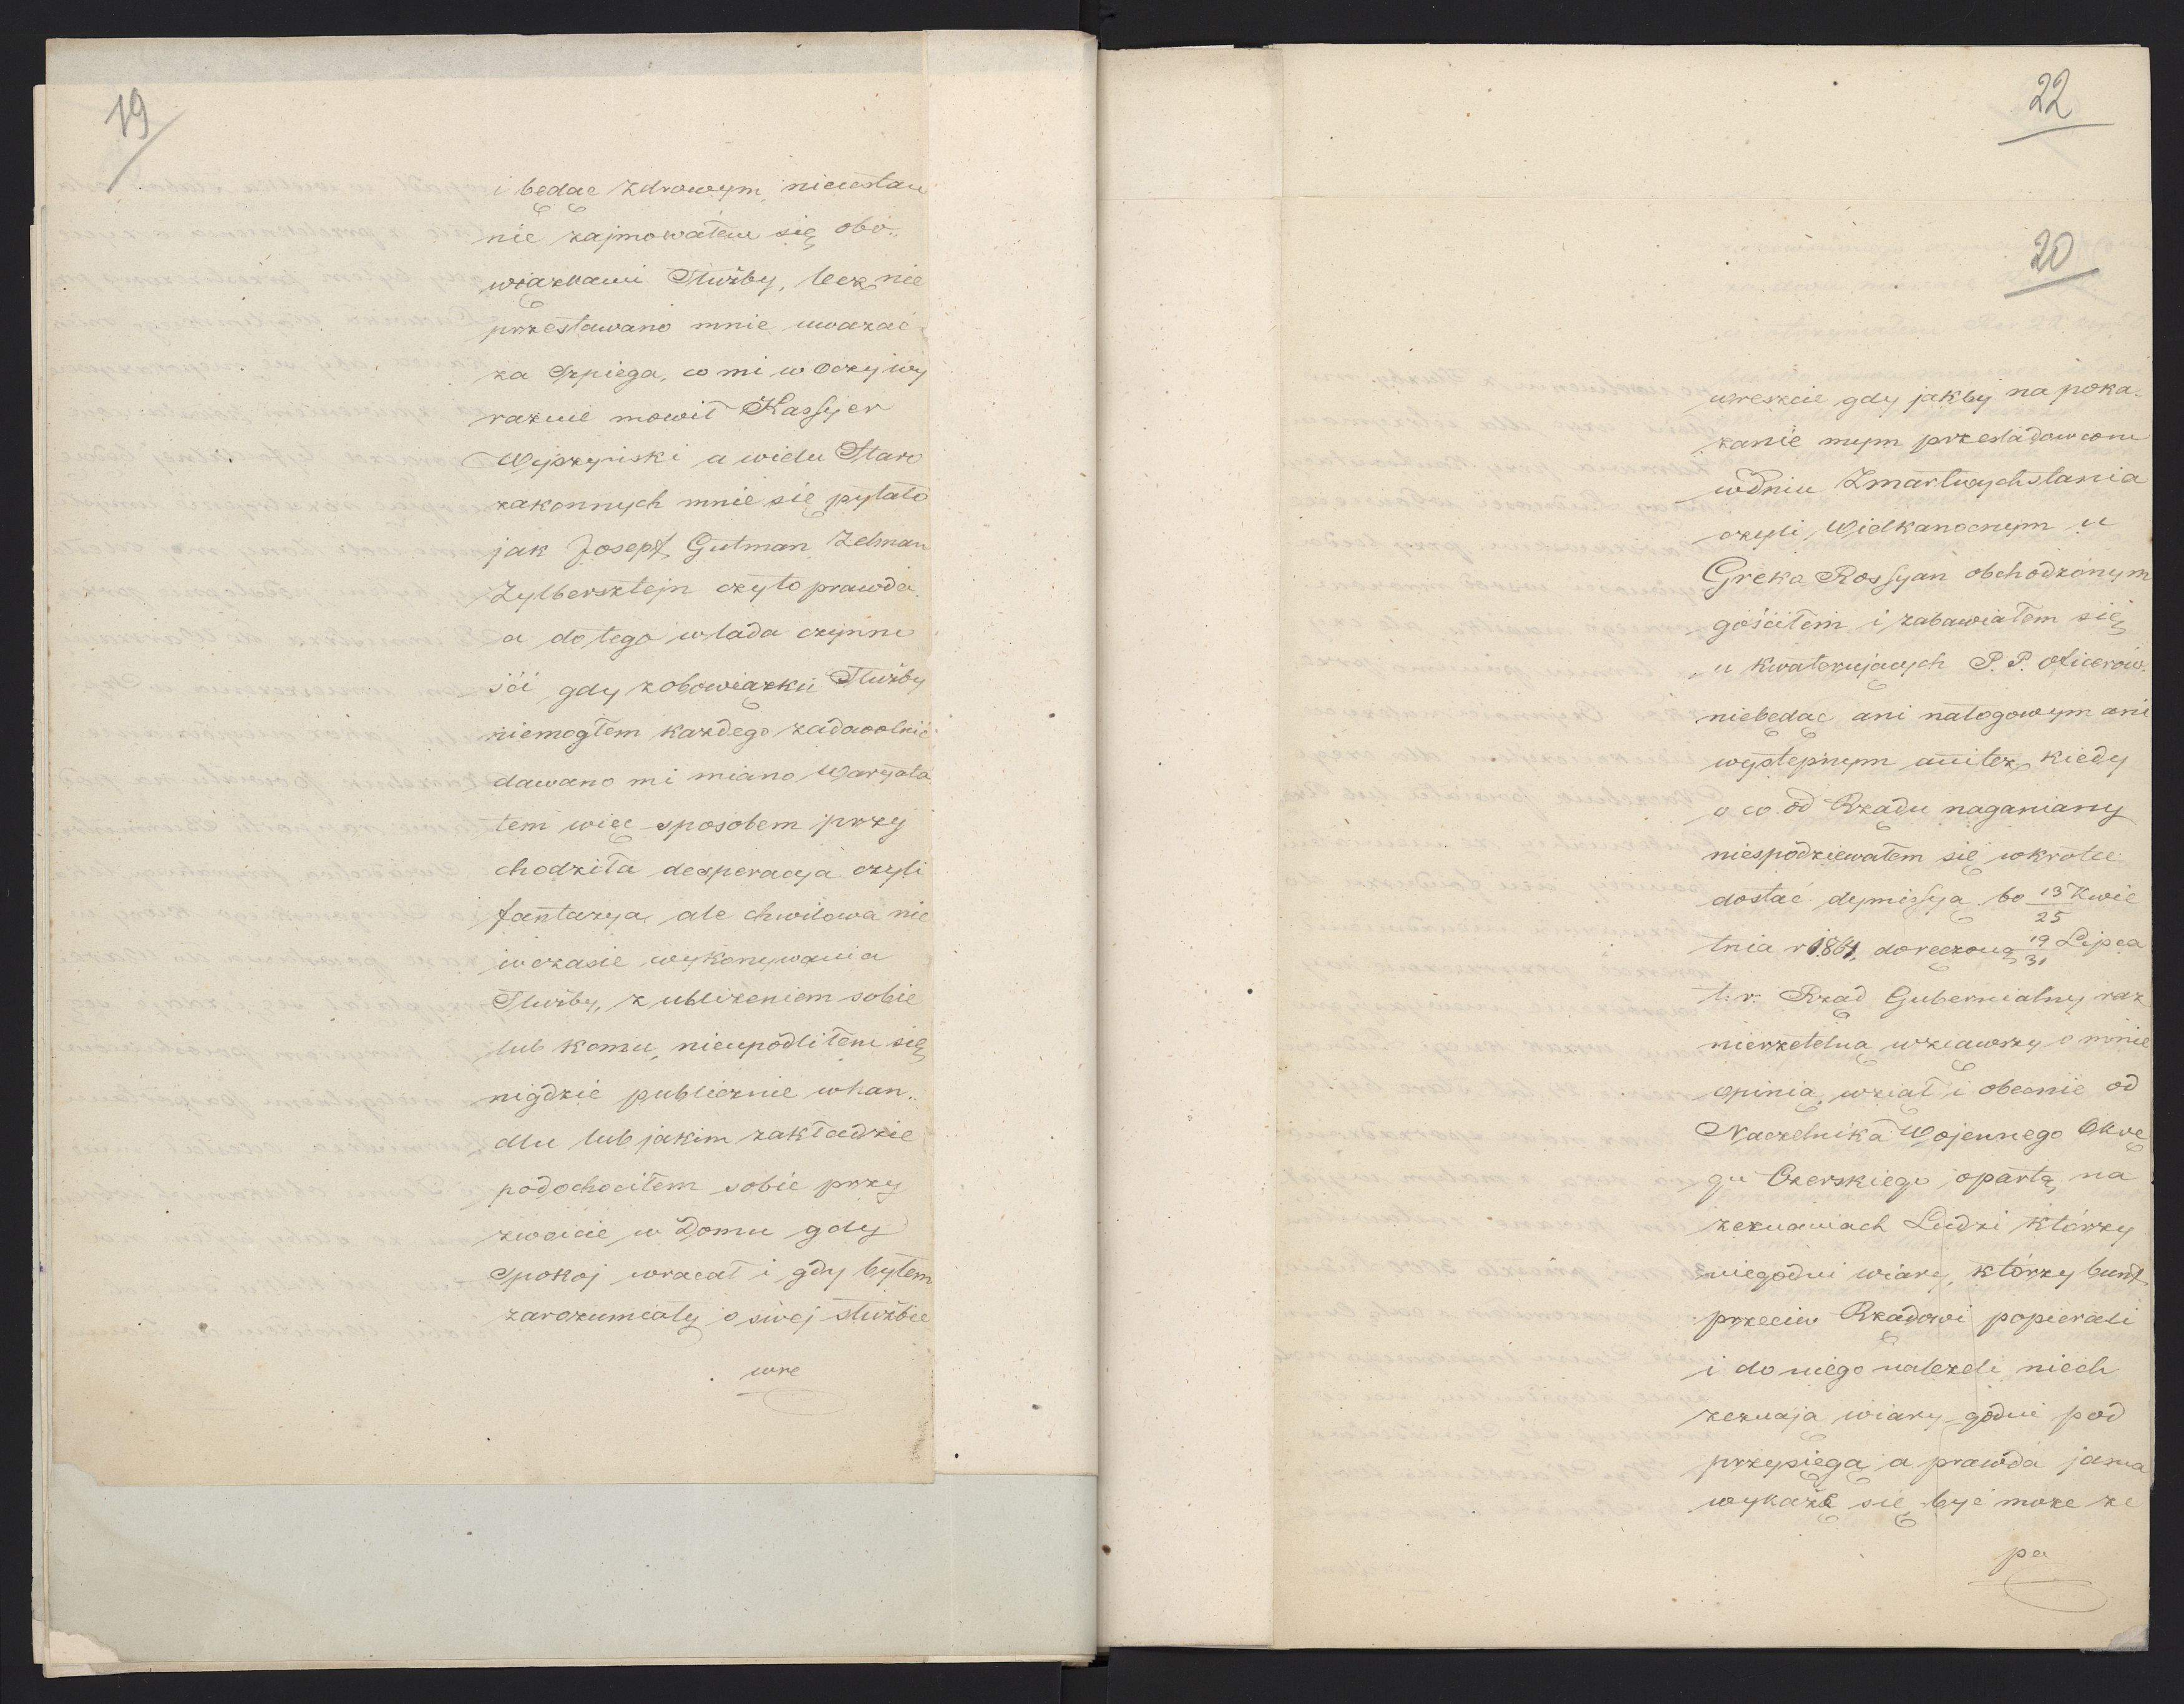 19
i będąc zdrowym, nieustan
nie zajmowałem się obo„
wiązkami Służby, lecz nie
przestawano mnie uważać
za Szpiega, co mi w oczy wy
raznie mowił Kassyer
Wyszyński a wielu Staro
zakonnych mnie się pytało
jak Josepf, Gutman, Zelman
Zylbersztejn czyto prawda,
a do tego wlada czynno
ści gdy z obowiązku Służby
niemogłem kazdego zadawolnić
dawano mi miano Waryata
tem więc sposobem przy
chodziła desperacya czyli
fantazya, ale chwilowa nie
wczasie wykonywania
Służby, z ubliżeniem sobie
lub komu, nieupodliłem się
nigdzie publicznie whan„
dlu lub jakim zakładzie
podochociłem sobie przy
zwoicie w Domu gdy
Spokoj wracał i gdy byłem
zarozumiały o swej służbie
wre
22
20
wreszcie gdy jakby na poka„
zanie mym prześladowcom
wdniu Zmartwychstania
czyli Wielkanocnym u
Greka Rossyan obchodzonym
gościłem i zabawiałem się
u kwaterujących P. P. Oficerów
niebędąc ani nałogowym ani
występnym aniteż kiedy
o co od Rządu naganiany
niespodziewałem się wkrotce
dostać dymissyą bo 13/25 Kwie
tnia r 1864, doręczoną 19/31 Lipca
t. r. Rząd Gubernialny raz
nierzetelną wziąwszy o mnie
opinią, wziął i obecnie od
Naczelnika Wojennego Okrę
gu Ozerskiego opartą na
zeznaniach Ludzi którzy
niegodni wiary, którzy bunt
przeciw Rządowi popierali
i do niego należeli, niech
zeznają wiary godni pod
przysięgą a prawda jasna
wykaże się, być może ze
pa